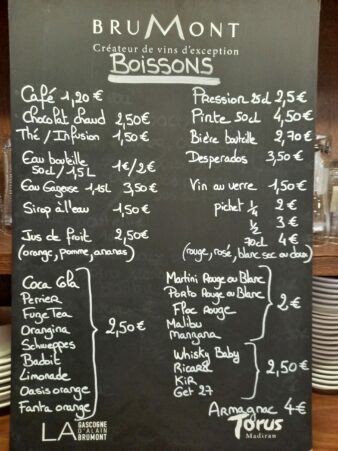 BRUMONT
Créateur de vins d'exception
BOISSONS
Café 1,20€
Chocolat chaud 2,50€
Thé / Infusion 1,50€
Eau bouteille
50cl / 1,5L 1€/2€
Eau Gazeuse 1,15L 3,50€
Sirop à l'eau 1,50€
Jus de fruit 2,50€
(orange, pomme, ananas)
Coca Cola
Perrier
Fuze Tea
Orangina
Schweppes
Badoit
Limonade
Oasis orange
Fanta orange
2,50€
Pression 25cl 2,5€
Pinte 50cl 4,50€
Bière bouteille 2,70€
Desperados 3,50€
Vin au verre 1,50€
pichet 1/4 2€
1/2 3€
70cl 4€
(rouge, rosé, blanc sec ou doux)
Martini Rouge ou Blanc
Porto Rouge ou Blanc
Floc Rouge
Malibu
Manzana
2€
Whisky Baby
Ricard
Kir
Get 27
2,50€
Armagnac 4€
LA GASCOGNE
D'ALAIN
BRUMONT
Torus
Madiran